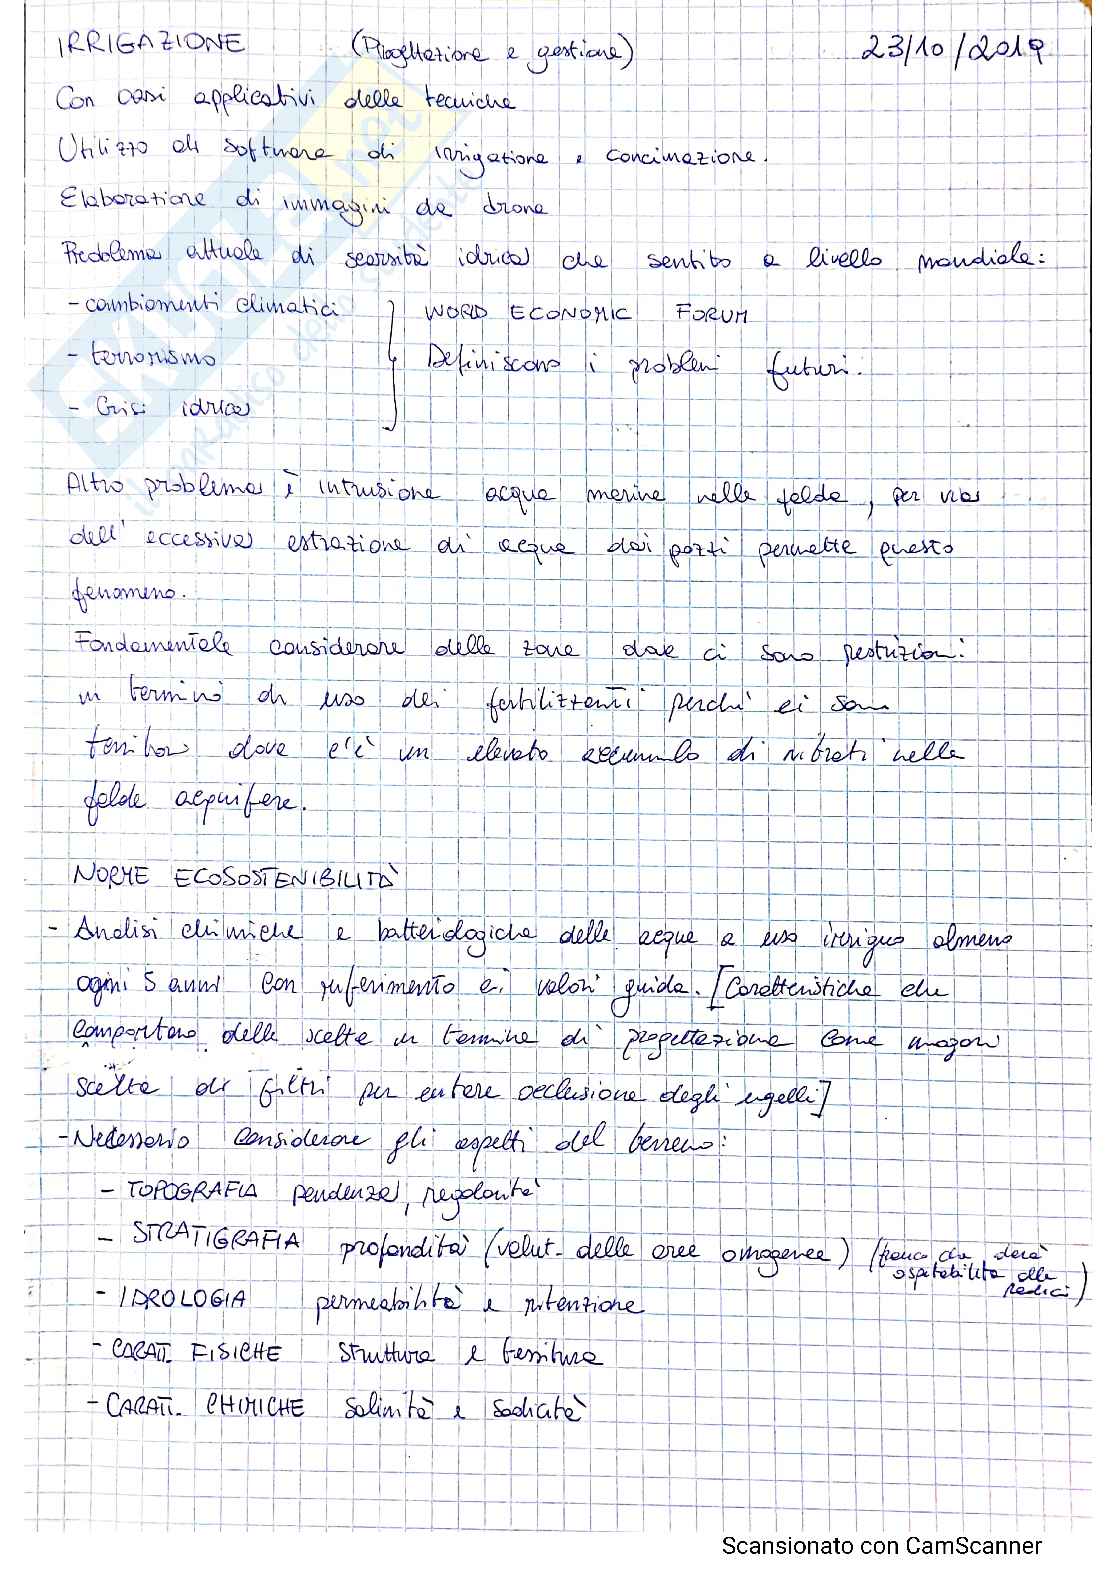 IRRIGAZIONE (Progettazione e gestione) 23/10/2019
Con casi applicativi delle tecniche
Utilizzo di software di irrigazione e concimazione.
Elaborazione di immagini da drone
Problema attuale di scarsità idrica che sentito a livello mondiale:
- cambiamenti climatici
- terrorismo
- Crisi idrica
WORD ECONOMIC FORUM
Definiscono i problemi futuri.
Altro problema è intrusione acqua marina nelle falda, per via
dell'eccessiva estrazione di acqua dai pozzi permette questo
fenomeno.
Fondamentale considerare delle zone dove ci sono restrizioni
in termini di uso dei fertilizzanti perchè ci sono
territori dove c'è un elevato accumulo di nitrati nelle
falde acquifere.
NORME ECOSOSTENIBILITÀ
- Analisi chimiche e batteriologiche delle acque a uso irriguo almeno
ogni 5 anni con riferimento ai valori guida. [Caratteristiche che
comportano delle scelte in termine di progettazione come maggior
scelta di filtri per evitare occlusione degli ugelli]
- Necessario considerare gli aspetti del terreno:
- TOPOGRAFIA pendenza, regolarità
- STRATIGRAFIA profondità (valut. delle aree omogenee) (franco che darà
ospitabilità alle
radici)
- IDROLOGIA permeabilità e ritenzione
- CARATT. FISICHE struttura e tessitura
- CARATT. CHIMICHE salinità e sodicità
Scansionato con CamScanner